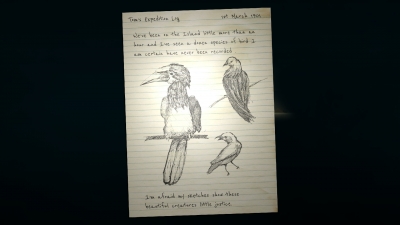 Travis Expedition Log 1st March, 1920.
We've been on the Island little more than an
hour and I've seen a dozen species of bird I
am certain have never been recorded
I'm afraid my sketches show these
beautiful creatures little justice.